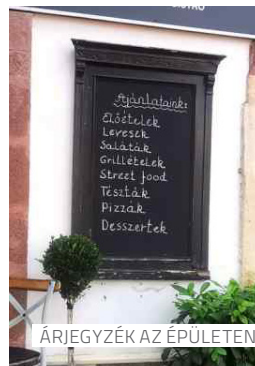 BISTRO
Ajánlataink:
Előételek
Levesek
Saláták
Grillételek
Street food
Tészták
Pizzák
Desszertek
ÁRJEGYZÉK AZ ÉPÜLETEN